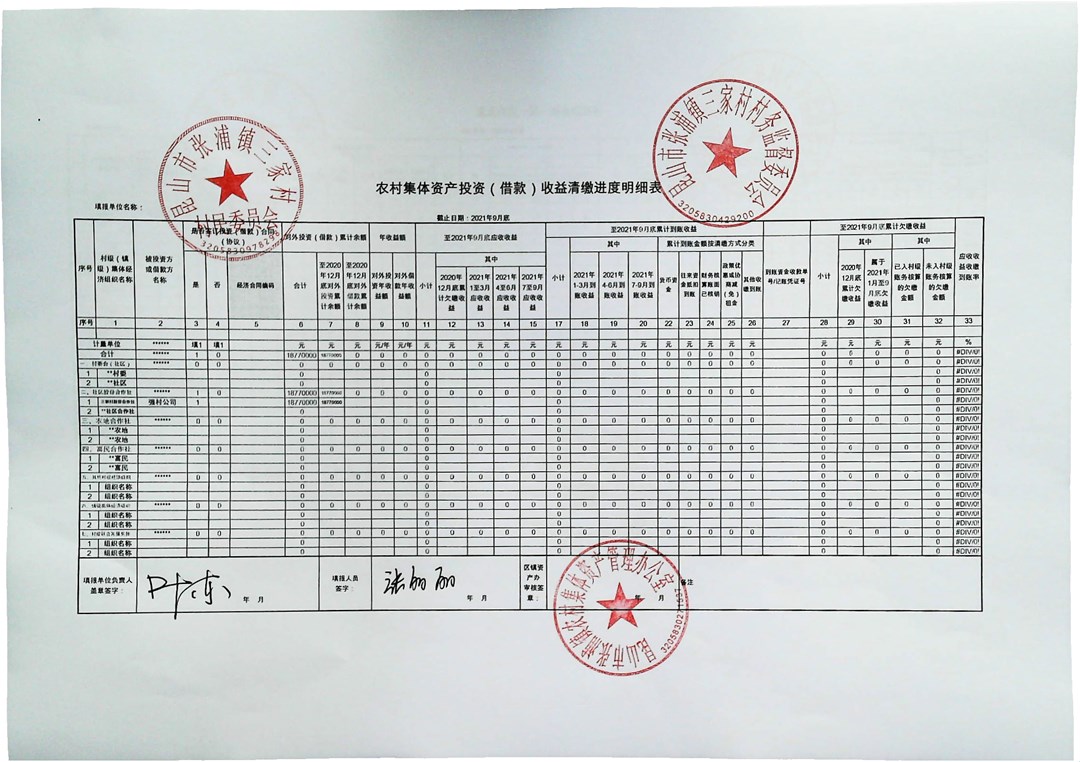 昆山市张浦镇三家村
村民委员会
昆山市张浦镇三家村村务监督委员会
3205830429200
农村集体资产投资（借款）收益清缴进度明细表
填报单位名称：
截止日期：2021年9月底
序号 村级（镇级）集体经济组织名称 被投资方或借款方名称 是否签订投资（借款）合同（协议） 对外投资（借款）累计余额 年收益额 至2021年9月底应收收益 至2021年9月底累计到账收益 至2021年9月底累计欠缴收益 应收收益收缴到账率
其中 其中 累计到账金额按清缴方式分类 其中 其中
是 否 经济合同编码 合计 至2020年12月底对外投资累计余额 至2020年12月底对外借款累计余额 对外投资年收益额 对外借款年收益额 小计 2020年12月底累计欠缴收益 2021年1至3月应收益 2021年4至6月应收益 2021年7至9月应收益 小计 2021年1-3月到账收益 2021年4-6月到账收益 2021年7-9月到账收益 货币资金 往来资金抵扣到账 财务核账面已核销 政策优惠或协商减（免）租金 其他收缴到账 到账资金收款单号/记账凭证号 小计 2020年12月底累计欠缴收益 属于2021年1月至9月底欠缴收益 已入村级账务核算的欠缴金额 未入村级账务核算的欠缴金额
序号 1 2 3 4 5 6 7 8 9 10 11 12 13 14 15 17 18 19 20 22 23 24 25 26 27 28 29 30 31 32 33
计量单位 ****** 填1 填1 元 元 元 元/年 元/年 元 元 元 元 元 元 元 元 元 元 元 元 元 元 元 元 元 元 元 %
合计 ****** 1 0 18770000 18770000 0 0 0 0 0 0 0 0 0 0 0 0 0 0 0 0 0 0 0 0 0 0 #DIV/0!
一、村委会（社区） ****** 0 0 0 0 0 0 0 0 0 0 0 0 0 0 0 0 0 0 0 0 0 0 0 0 0 0 #DIV/0!
1 **村委 0 0 0 0 0 #DIV/0!
2 **社区 0 0 0 0 0 #DIV/0!
二、社区股份合作社 ****** 1 0 18770000 18770000 0 0 0 0 0 0 0 0 0 0 0 0 0 0 0 0 0 0 0 0 0 0 #DIV/0!
1 强村公司 1 18770000 18770000 0 0 0 0 #DIV/0!
2 **社区合作社 0 0 0 0 0 #DIV/0!
三、农地合作社 ****** 0 0 0 0 0 0 0 0 0 0 0 0 0 0 0 0 0 0 0 0 0 0 0 0 0 0 #DIV/0!
1 **农地 0 0 0 0 0 #DIV/0!
2 **农地 0 0 0 0 0 #DIV/0!
四、富民合作社 ****** 0 0 0 0 0 0 0 0 0 0 0 0 0 0 0 0 0 0 0 0 0 0 0 0 0 0 #DIV/0!
1 **富民 0 0 0 0 0 #DIV/0!
2 **富民 0 0 0 0 0 #DIV/0!
****** 0 0 0 0 0 0 0 0 0 0 0 0 0 0 0 0 0 0 0 0 0 0 0 0 0 0 #DIV/0!
1 组织名称 0 0 0 0 0 #DIV/0!
2 组织名称 0 0 0 0 0 #DIV/0!
****** 0 0 0 0 0 0 0 0 0 0 0 0 0 0 0 0 0 0 0 0 0 0 0 0 0 0 #DIV/0!
1 组织名称 0 0 0 0 0 #DIV/0!
2 组织名称 0 0 0 0 0 #DIV/0!
****** 0 0 0 0 0 0 0 0 0 0 0 0 0 0 0 0 0 0 0 0 0 0 0 0 0 0 #DIV/0!
1 组织名称 0 0 0 0 0 #DIV/0!
2 组织名称 0 0 0 0 0 #DIV/0!
填报单位负责人盖章签字： 年 月 填报人员签字： 张丽丽 年 月 区镇资产办审核签章： 年 月 备注
昆山市张浦镇农村集体资产管理办公室